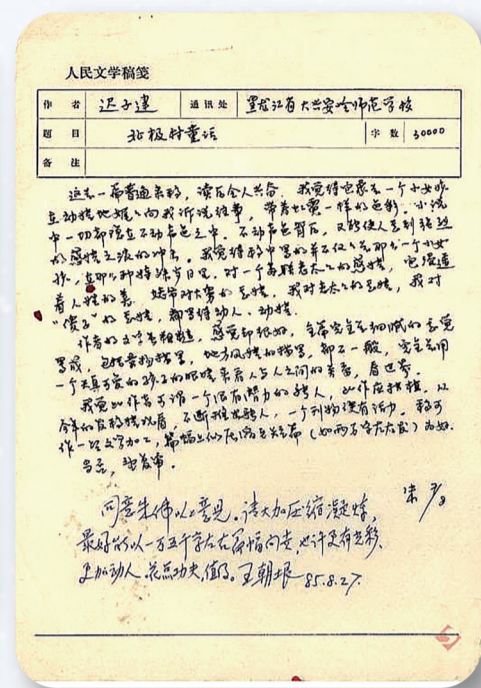 人民文学稿笺
作者 迟子建 通讯处 黑龙江省大兴安岭师范学校
题目 北极村童话 字数 30000
备注
这是一篇普通来稿，读后令人兴奋。我觉得它象是一个小女孩
在动情地娓娓向我诉说往事，带着如梦一样的色彩。小说
中一切都隐在不动声色之中。不动声色背后，又能使人感到强烈
的感情之流的冲击。我觉得稿中写的并不仅仅是那么一个小女
孩，在那种特殊的日里，对一个老太太的感情，它浸透
着人情的美。她对大黄的感情，我对老太太的感情，我对
“傻子”的感情，都写得动人、动情。
作者的文字有提炼，感觉都很好，全篇完全是细腻的感觉
写成，包括景物描写，地方风情的描写，都不一般，完全是用
一个天真可爱的孩子的眼睛来看人与人之间的关系，看世界。
我觉此作者可谓一个很有潜力的新人，此作应扶植。从
今年的发稿情况看，不断推出新人，一个刊物才有活力。稿可
作一些文字加工，篇幅上似应压缩些为好（如两万字左右）为好。
当否，望复审。
朱 8/8
同意朱伟以上意见。请大加压缩凝炼，
最好以一万五千字左右篇幅问世，也许更有光彩、
更加动人。花点功夫，值得。王朝垠 85.8.27.